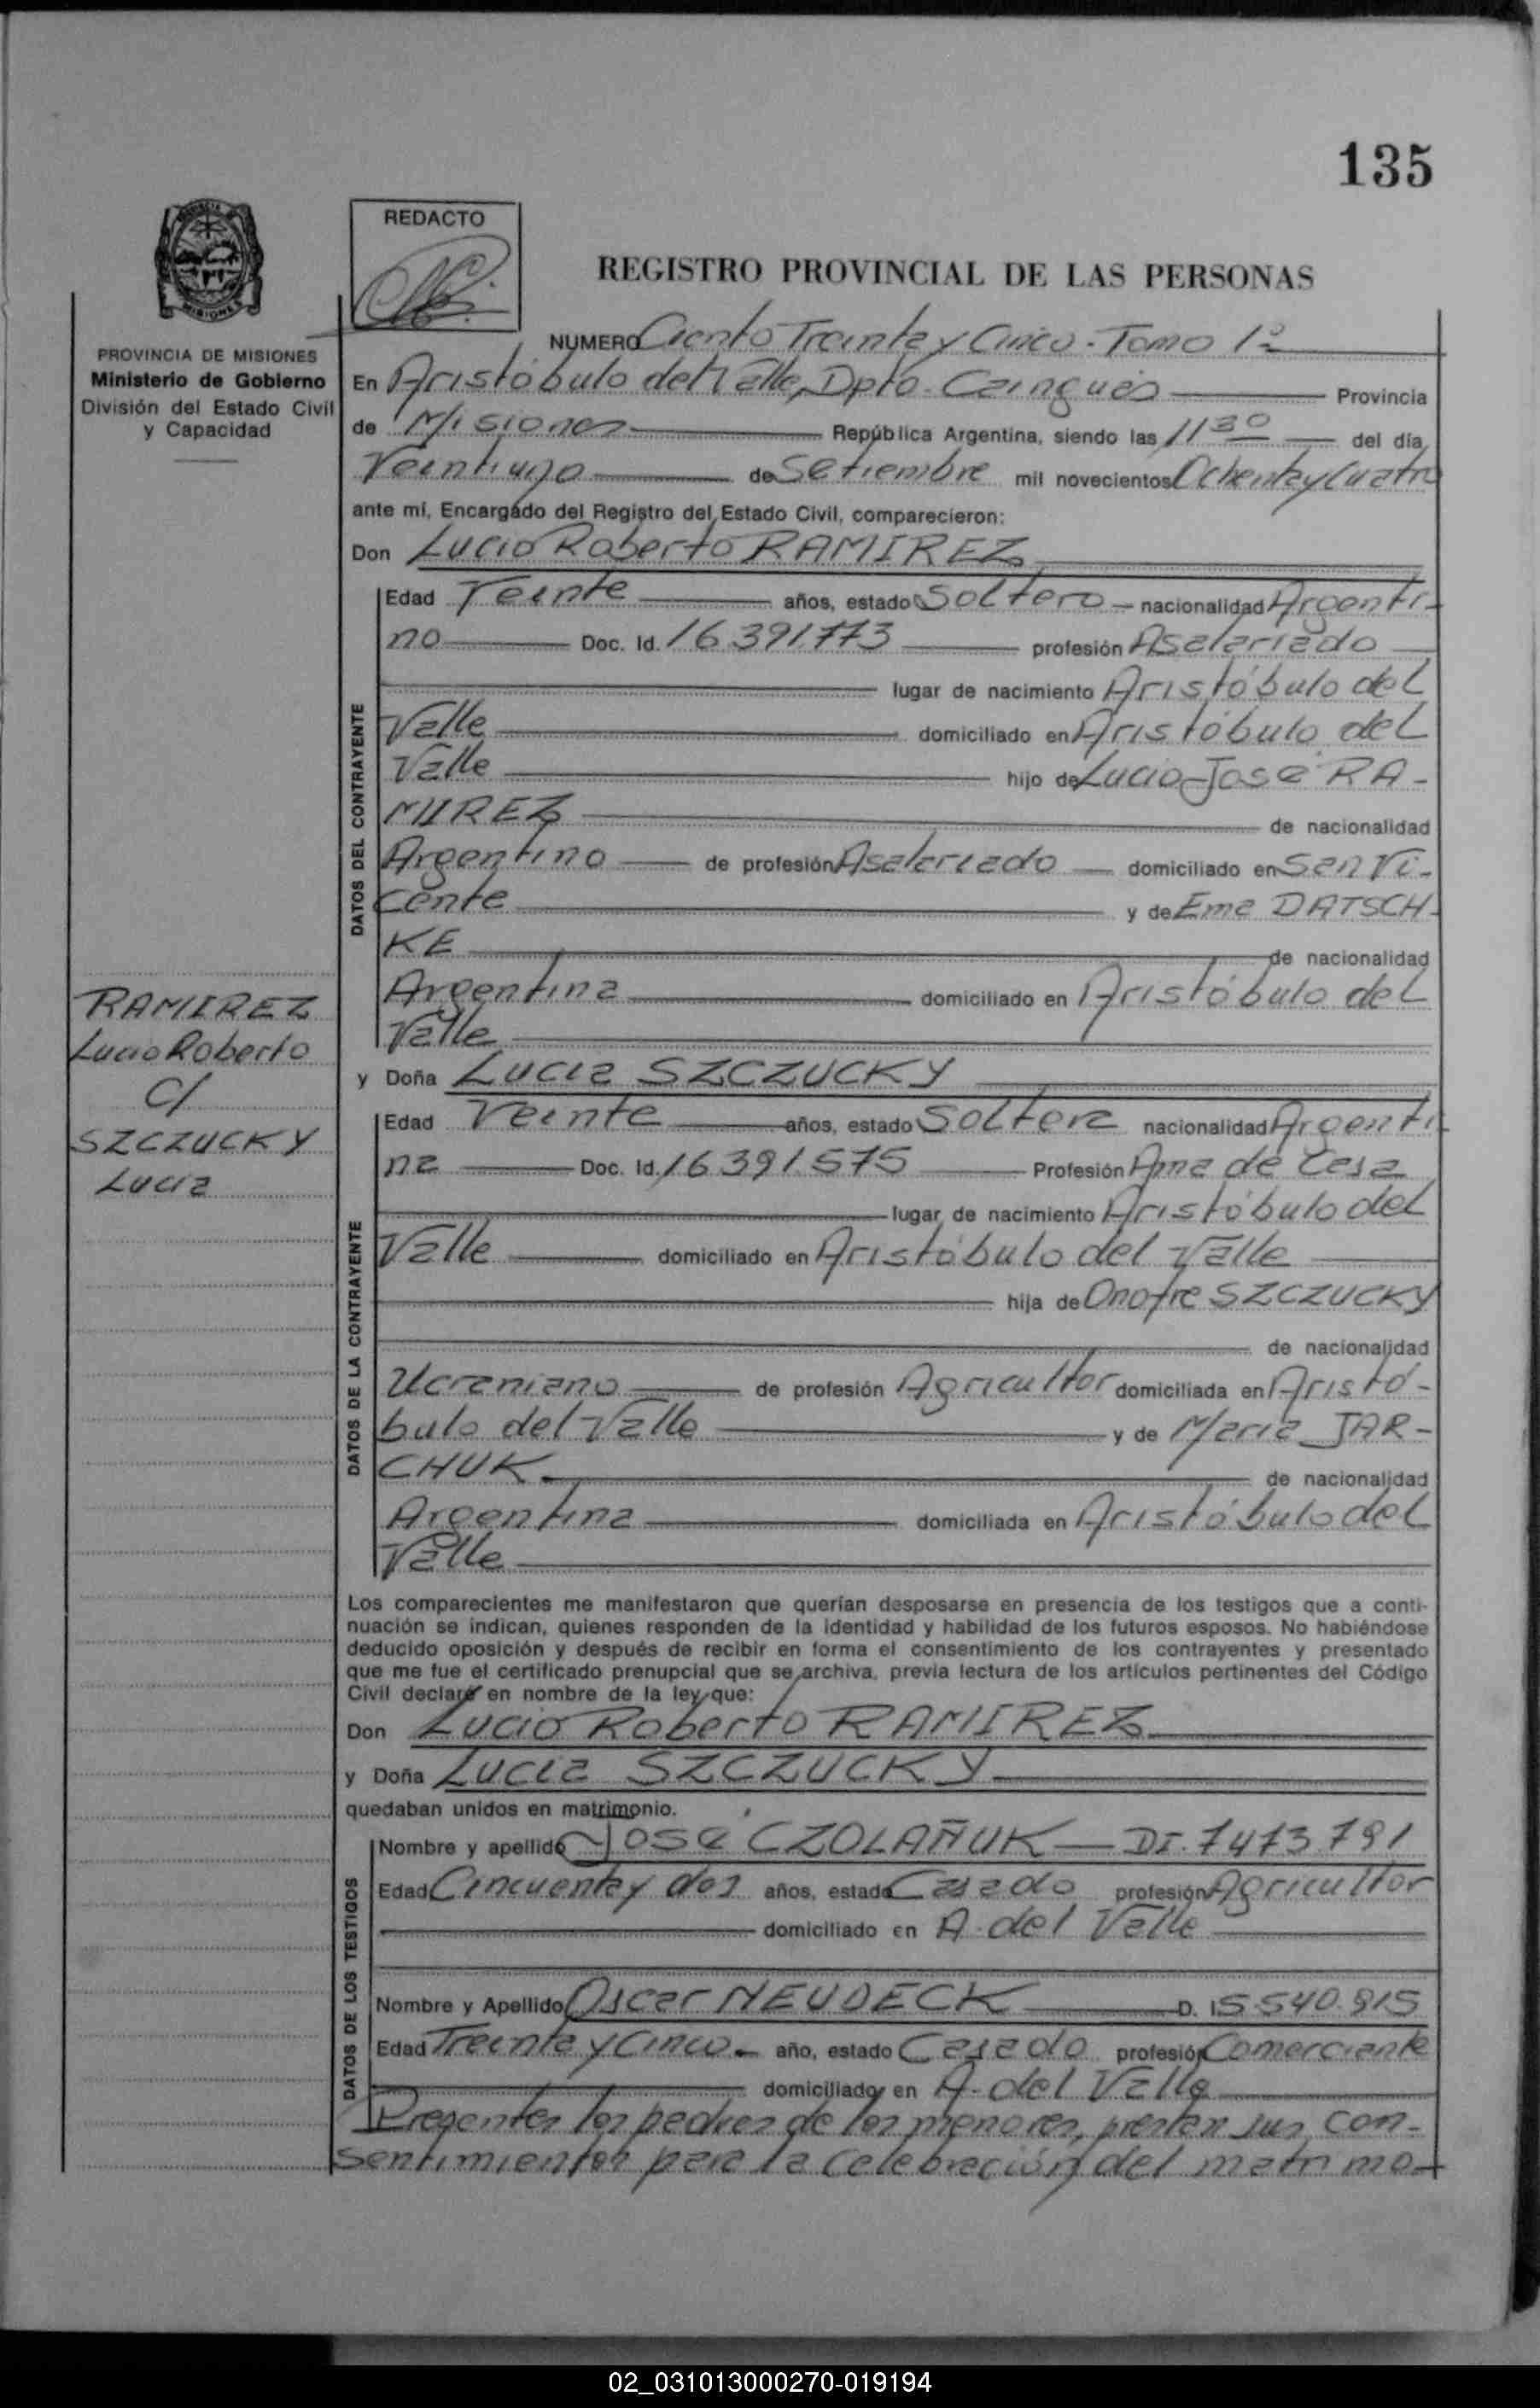 135
REDACTO
REGISTRO PROVINCIAL DE LAS PERSONAS
MISIONES
PROVINCIA DE MISIONES
Ministerio de Gobierno
División del Estado Civil
y Capacidad
NUMERO Ciento Treinta y Cinco - Tomo 1º
En Aristóbulo del Valle, Dpto. Cainguás Provincia
de Misiones República Argentina, siendo las 11 30 del día
Veintiuno de Setiembre mil novecientos Ochenta y Cuatro
ante mí, Encargado del Registro del Estado Civil, comparecieron:
Don Lucio Roberto RAMIREZ
Edad Veinte años, estado Soltero nacionalidad Argenti-
no Doc. Id. 16.391.773 profesión Asalariado
lugar de nacimiento Aristóbulo del
Valle domiciliado en Aristóbulo del
Valle hijo de Lucio José RA-
MIREZ de nacionalidad
Argentino de profesión Asalariado domiciliado en San Vi-
cente y de Ema DATSCH-
KE de nacionalidad
Argentina domiciliado en Aristóbulo del
Valle
DATOS DEL CONTRAYENTE
RAMIREZ
Lucio Roberto
C/
SZCZUCKY
Lucia
y Doña Lucia SZCZUCKY
Edad Veinte años, estado Soltera nacionalidad Argenti
na Doc. Id. 16.391.575 Profesión Ama de Casa
lugar de nacimiento Aristóbulo del
Valle domiciliado en Aristóbulo del Valle
hija de Onofre SZCZUCKY
de nacionalidad
Ucraniano de profesión Agricultor domiciliada en Aristó-
bulo del Valle y de Maria JAR-
CHUK de nacionalidad
Argentina domiciliada en Aristóbulo del
Valle
DATOS DE LA CONTRAYENTE
Los comparecientes me manifestaron que querían desposarse en presencia de los testigos que a conti-
nuación se indican, quienes responden de la identidad y habilidad de los futuros esposos. No habiéndose
deducido oposición y después de recibir en forma el consentimiento de los contrayentes y presentado
que me fue el certificado prenupcial que se archiva, previa lectura de los artículos pertinentes del Código
Civil declaré en nombre de la ley que:
Don Lucio Roberto RAMIREZ
y Doña Lucia SZCZUCKY
quedaban unidos en matrimonio.
Nombre y apellido José CZOLAÑUK DI. 7473.791
Edad Cincuenta y dos años, estado Casado profesión Agricultor
domiciliado en A. del Valle
Nombre y Apellido Oscar NEUDECK D. I 5.540.815
Edad Treinta y Cinco año, estado Casado profesión Comerciante
domiciliado en A. del Valle
DATOS DE LOS TESTIGOS
Presentes los padres de los menores, prestan sus con-
sentimientos para la celebración del matrimo-
02_031013000270-019194